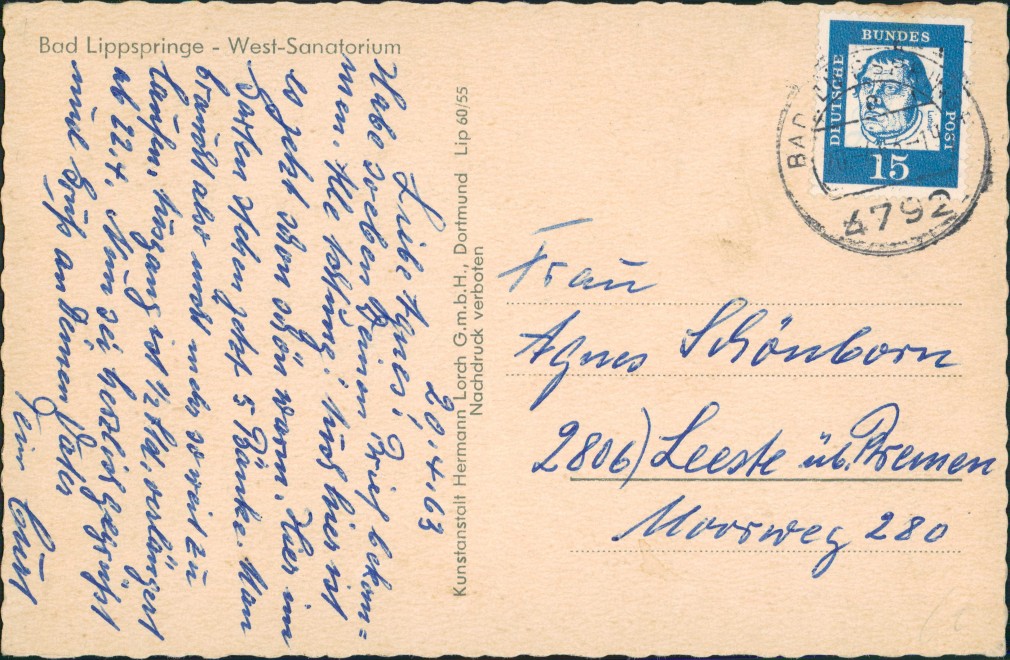 Bad Lippspringe - West-Sanatorium
20.4.63
Liebe Agnes!
Habe soeben Deinen Brief bekom=
men. Alle Achtung! Auch hier ist
es jetzt schon schön warm. Hier im
Garten stehen jetzt 5 Bänke. Man
braucht also nicht mehr so weit zu
laufen. Ausgang ist ½ Std. verlängert
ab 22.4. Nun sei herzlich gegrüßt
und Gruß an Deinen Vater
Dein Curt
Kunstanstalt Hermann Lorch G.m.b.H., Dortmund Lip 60/55
Nachdruck verboten
DEUTSCHE
BUNDES
POST
15
BAD
4792
Frau
Agnes Schönborn
2806) Leeste üb. Bremen
Moorweg 280